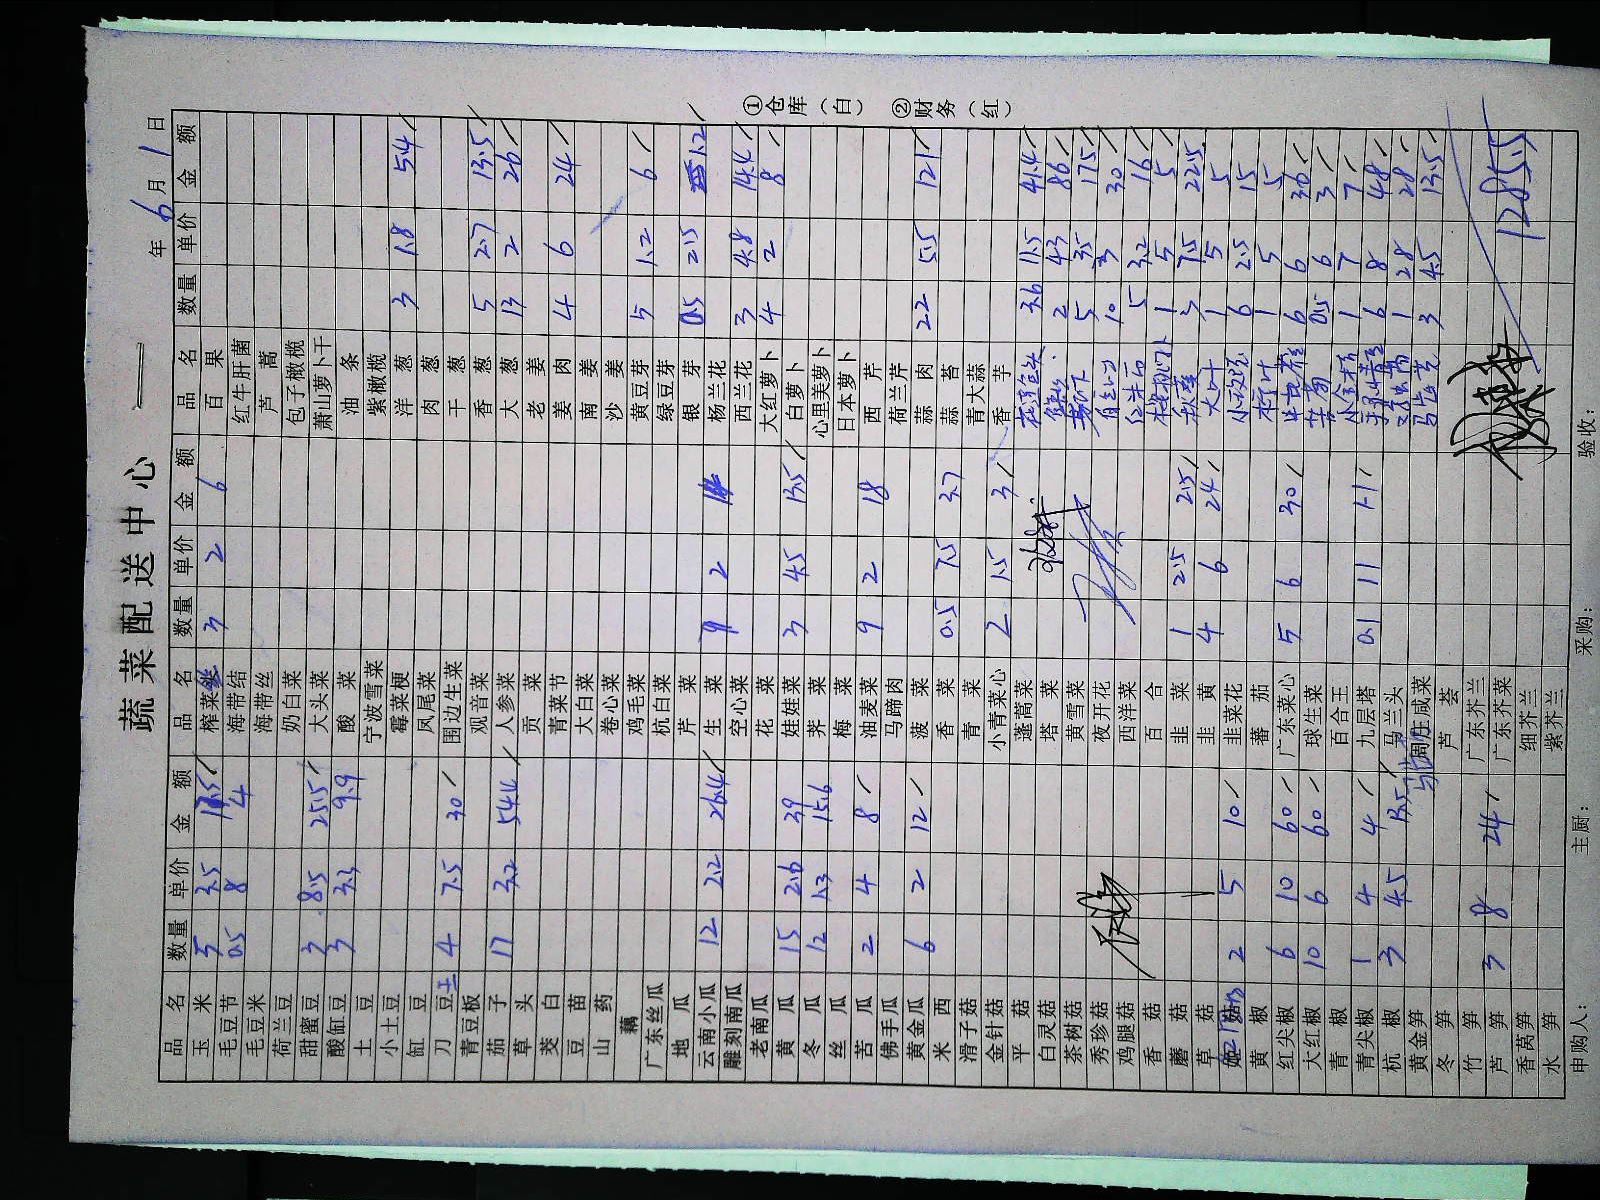 蔬菜配送中心 一
年 6 月 1 日
品名 数量 单价 金额 品名 数量 单价 金额 品名 数量 单价 金额
玉米 5 3.5 17.5 榨菜丝 3 2 6 百果
毛豆节 0.5 8 4 海带结 红牛肝菌
毛豆米 海带丝 芦蒿
荷兰豆 奶白菜 包子橄榄
甜蜜豆 3 8.5 25.5 大头菜 萧山萝卜干
酸缸豆 3 3.3 9.9 酸菜 油条
土豆 宁波雪菜 紫橄榄
小土豆 霉菜梗 洋葱 3 1.8 5.4
缸豆 凤尾菜 肉葱
刀豆 4 7.5 30 围边生菜 干葱
青豆板 观音菜 香葱 5 2.7 13.5
茄子 17 3.2 54.4 人参菜 大葱 13 2 26
草头 贡菜 老姜
茭白 青菜节 姜肉 4 6 24
豆苗 大白菜 南姜
山药 卷心菜 沙姜
藕 鸡毛菜 黄豆芽 5 1.2 6
广东丝瓜 杭白菜 绿豆芽
地瓜 芹菜 银芽 0.5 2.5 1.2
云南小瓜 12 2.2 26.4 生菜 2 杨兰花
雕刻南瓜 空心菜 西兰花 3 4.8 14.4
老南瓜 花菜 大红萝卜 4 2 8
黄瓜 15 2.6 39 娃娃菜 3 4.5 13.5 白萝卜
冬瓜 12 1.3 15.6 荠菜 心里美萝卜
丝瓜 梅菜 日本萝卜
苦瓜 2 4 8 油麦菜 9 2 18 西芹
佛手瓜 马蹄肉 荷兰芹
黄金瓜 6 2 12 菠菜 蒜肉 22 5.5 121
米西 香菜 0.5 7.5 3.7 蒜苔
滑子菇 青菜 青大蒜
金针菇 小青菜心 2 1.5 3 香芋
平菇 蓬蒿菜 3.6 11.5 41.4
白灵菇 塔菜 2 43 86
茶树菇 黄雪菜 5 3.5 17.5
秀珍菇 夜开花 10 3 30
鸡腿菇 西洋菜 5 3.2 16
香菇 百合 1 5 5
蘑菇 韭菜 1 2.5 2.5 秋葵 3 7.5 22.5
草菇 韭黄 4 6 24 大叶 1 5 5
2 5 10 韭菜花 6 2.5 15
黄椒 蕃茄 1 5 5
红尖椒 6 10 60 广东菜心 5 6 30 6 6 36
大红椒 10 6 60 球生菜 0.5 6 3
青椒 百合王 1 7 7
青尖椒 1 4 4 九层塔 0.1 11 1.1 6 8 48
杭椒 3 4.5 13.5 马兰头 1 28 28
黄金笋 周庄咸菜 马齿苋 3 4.5 13.5
冬笋 芦荟
竹笋 广东芥兰
芦笋 3 8 24 广东芥菜 1285.5
香莴笋 细芥兰
水笋 紫芥兰
申购人： 主厨： 采购： 验收：
①仓库（白） ②财务（红）